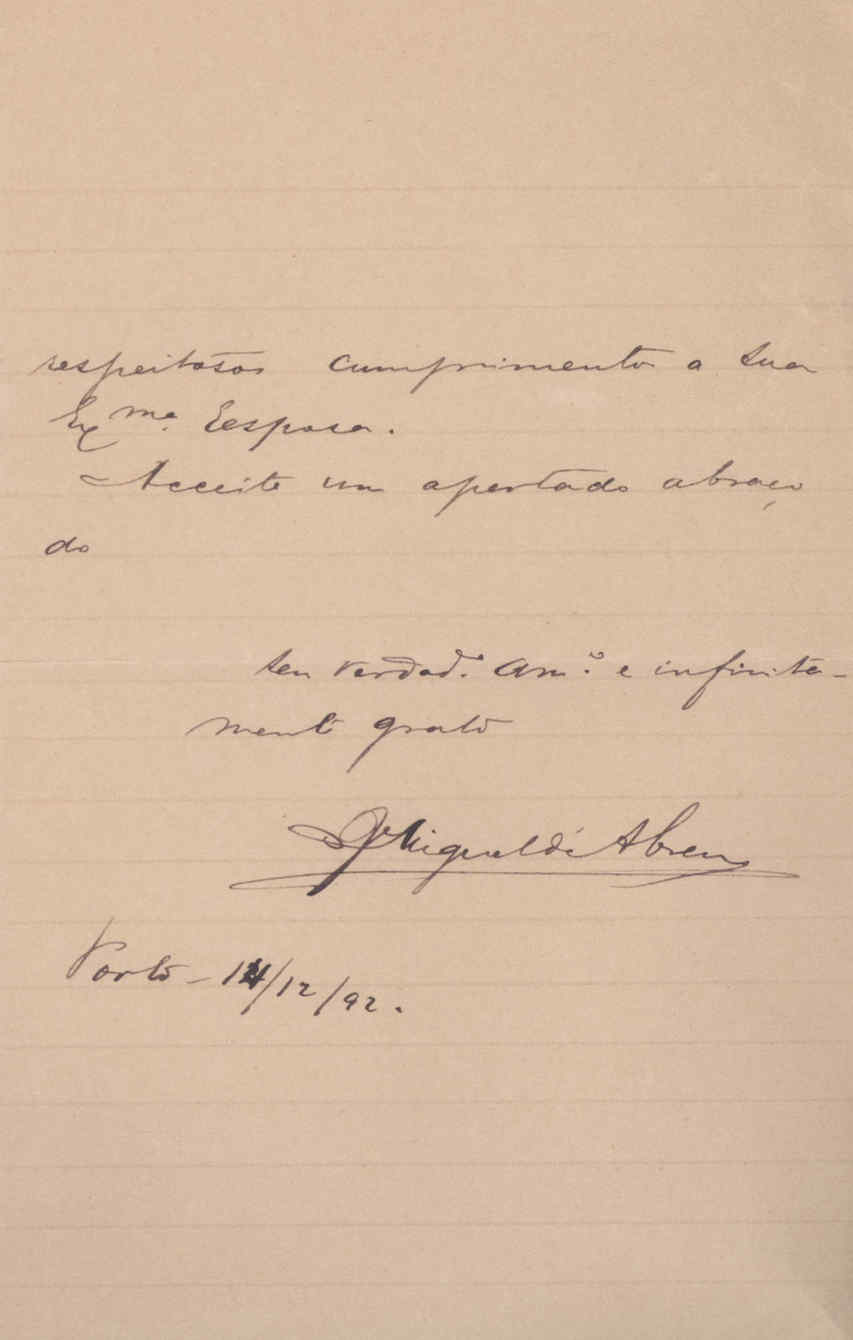 respeitosos cumprimentos a sua
Ex.ma Esposa.
Acceite um apertado abraço
do
seu verdad.º am.º e infinita-
mente grato
Miguel de Abreu
Porto - 14/12/92.